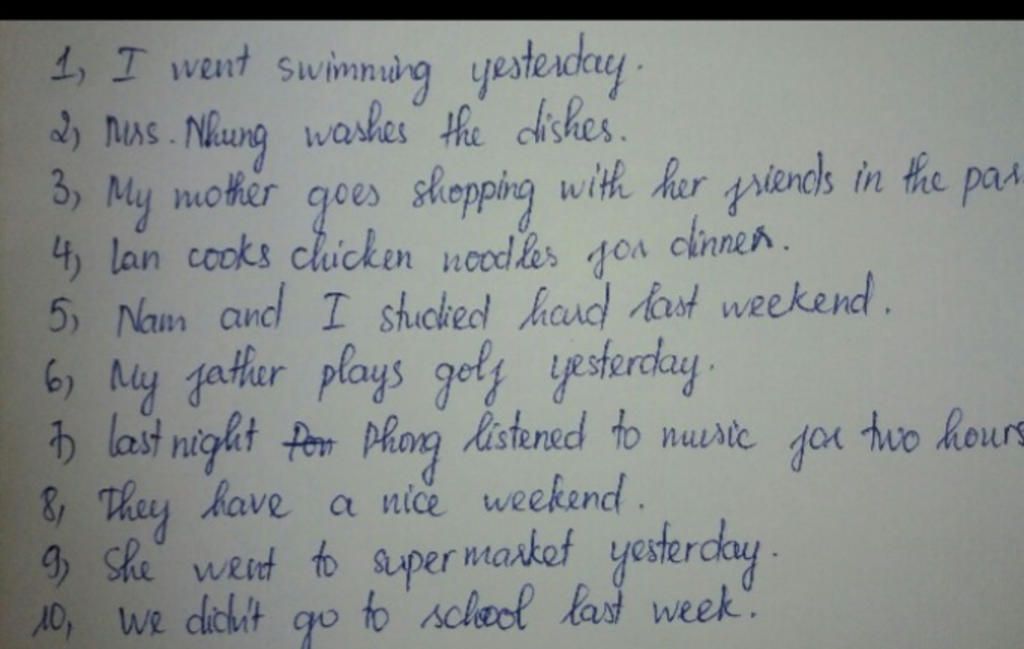 1, I went swimming yesterday.
2, Mrs. Nhung washes the dishes.
3, My mother goes shopping with her friends in the par
4, Lan cooks chicken noodles for dinner.
5, Nam and I studied hard last weekend.
6, My father plays golf yesterday.
7, last night Phong listened to music for two hours
8, They have a nice weekend.
9, She went to supermarket yesterday.
10, We didn't go to school last week.